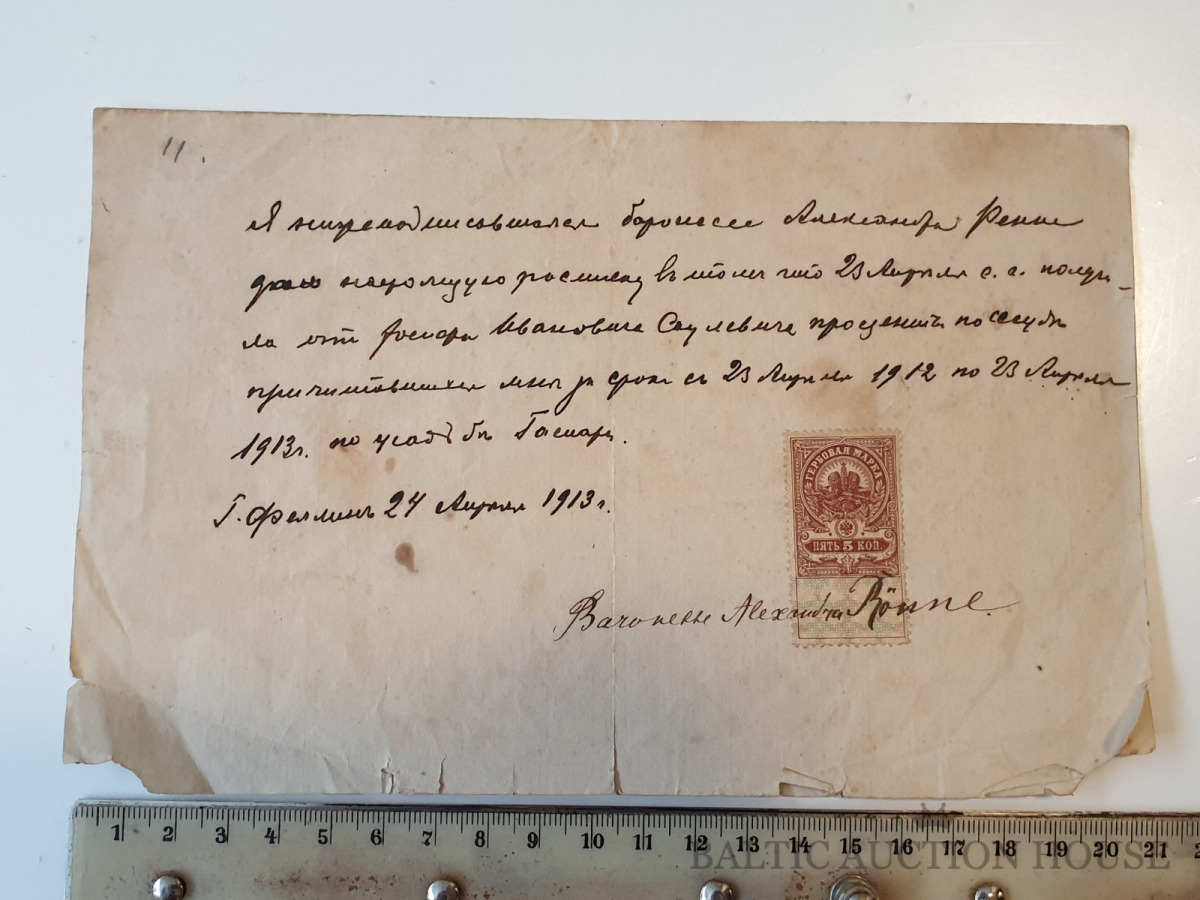 11.
Я нижеподписавшаяся баронесса Александра Ренне
даю настоящую росписку въ томъ что 23 Апреля с. г. получи-
ла отъ Госпара Ивановича Саулевича процентъ по ссудѣ
причитавшихся мнѣ за срокъ съ 23 Апреля 1912 по 23 Апреля
1913 г. по усадьбѣ Гаспара.
Г. Феллинъ 24 Апреля 1913 г.
ГЕРБОВАЯ МАРКА
ПЯТЬ 5 КОП.
Baronesse Alexandra Rönne.
1 2 3 4 5 6 7 8 9 10 11 12 13 14 15 16 17 18 19 20 21
BALTIC AUCTION HOUSE